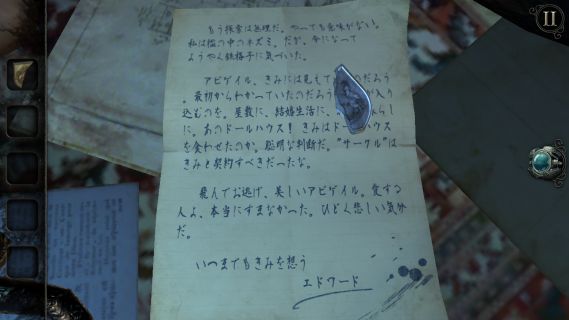 もう探索は無理だ。やっても意味がない!
私は檻の中のネズミ。だが、今になって
ようやく鉄格子に気づいた。
アビゲイル、きみには見えて のだろう
。最初からわかっていたのだろう が入り
込むのを。屋敷に、結婚生活に、 らし
に。あのドールハウス! きみはドールハウス
を食わせたのか。聡明な判断だ。"サークル"は
きみと契約すべきだったな。
飛んでお逃げ、美しいアビゲイル。愛する
人よ、本当にすまなかった。ひどく悲しい気分
だ。
いつまでもきみを想う
エドワード
II